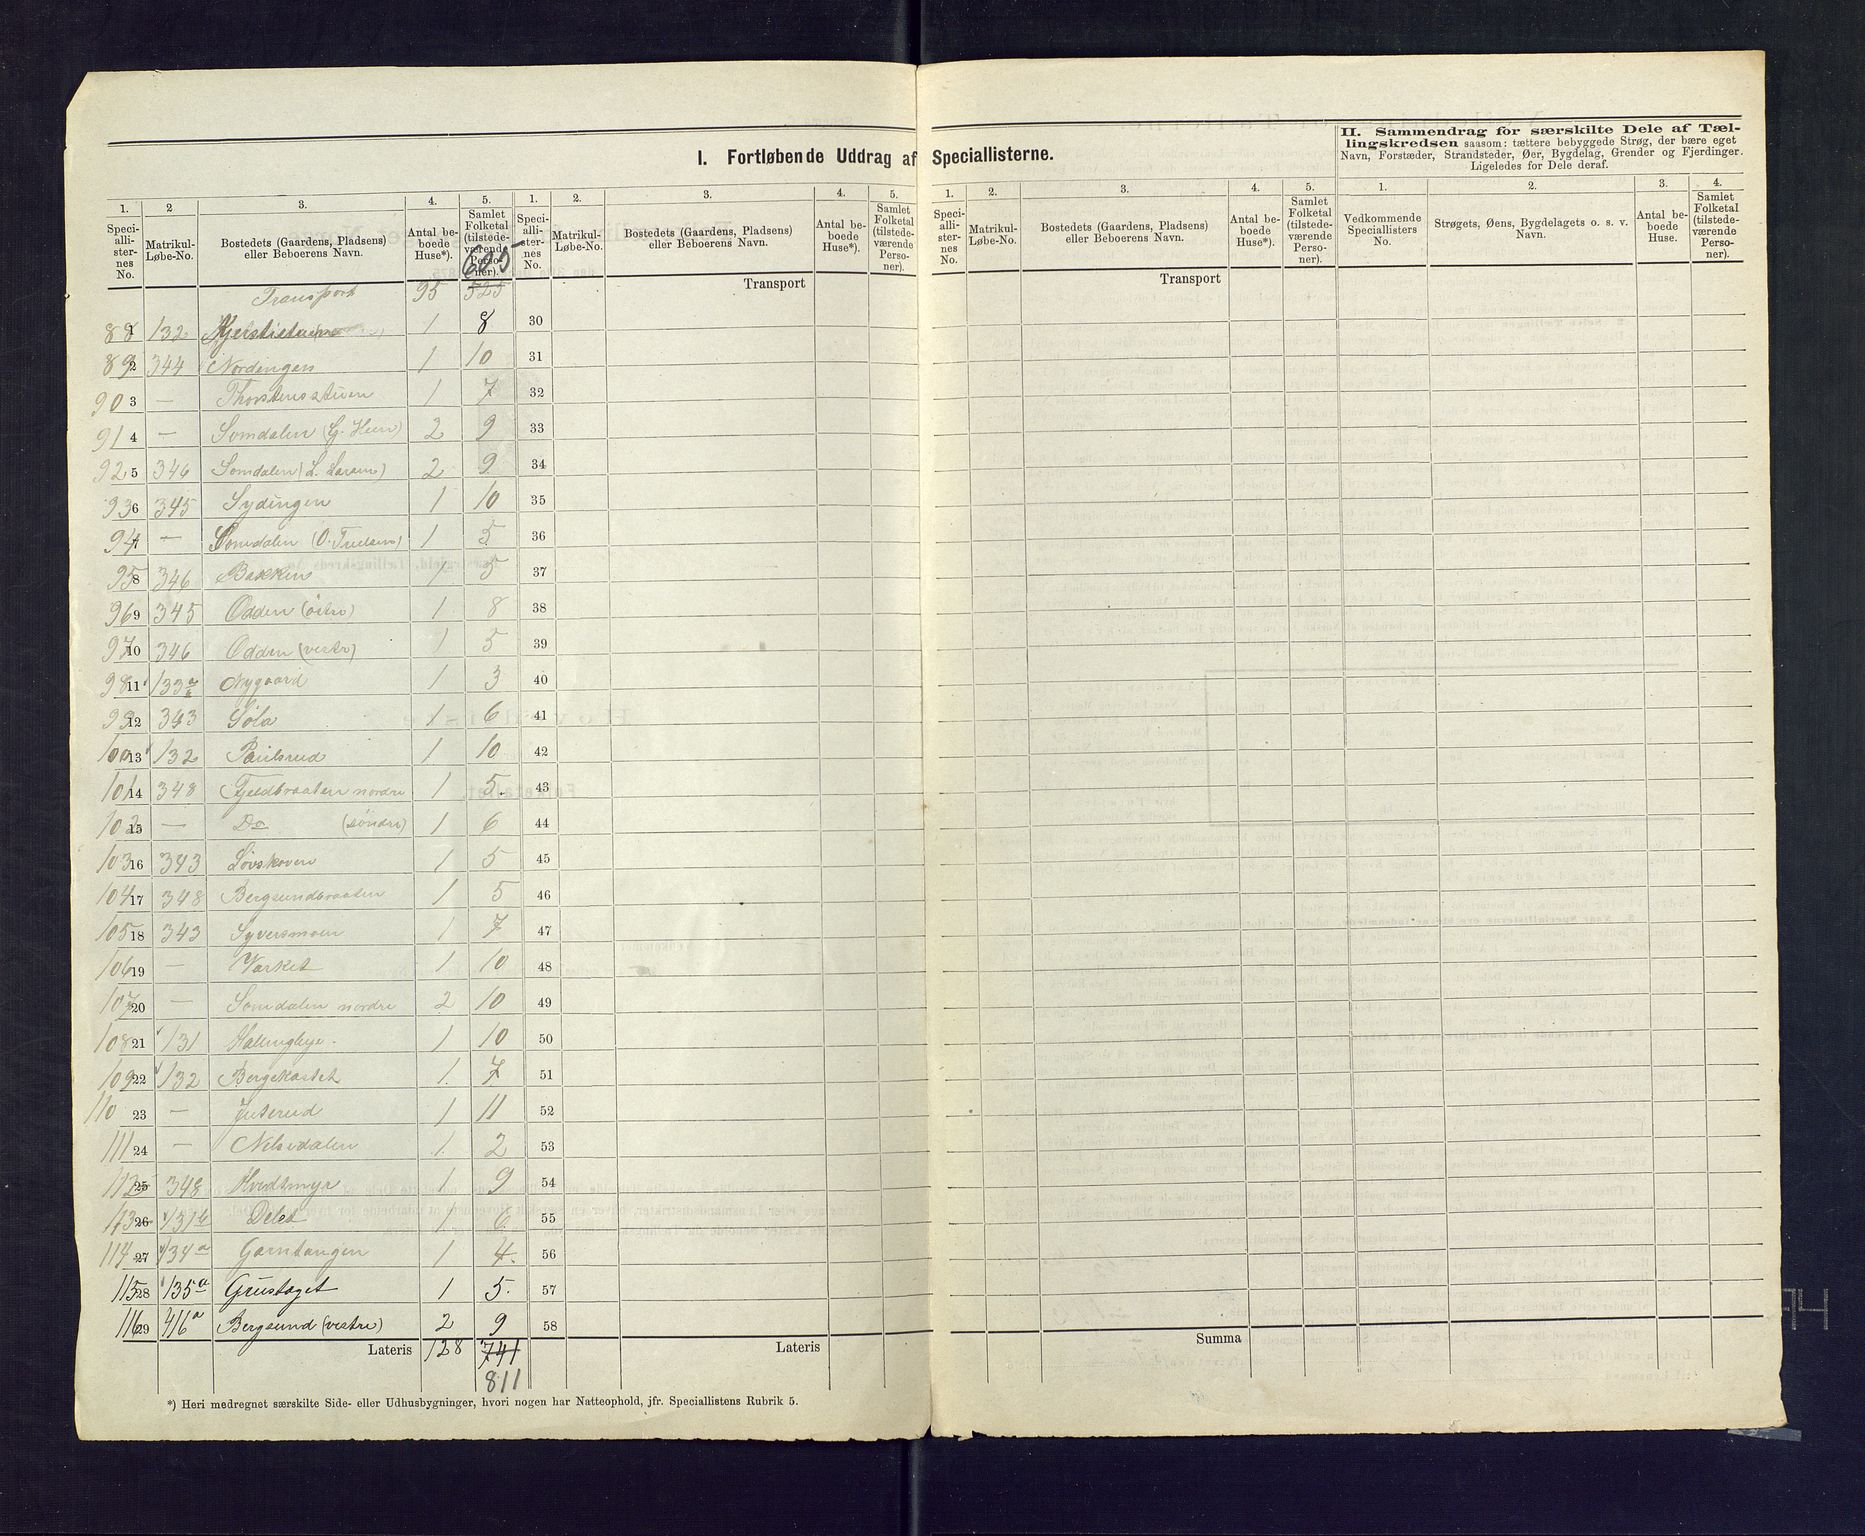 I. Fortløbende Uddrag af Speciallisterne.
II. Sammendrag for særskilte Dele af Tæl-
lingskredsen saasom: tættere bebyggede Strøg, der bære eget
Navn, Forstæder, Strandsteder, Øer, Bygdelag, Grender og Fjerdinger.
Ligeledes for Dele deraf.
1. 2 3. 4. 5. 1. 2. 3. 4. 5. 1. 2. 3. 4. 5. 1. 2. 3. 4.
Speciallisternes No. Matrikul-Løbe-No. Bostedets (Gaardens, Pladsens) eller Beboerens Navn. Antal beboede Huse*). Samlet Folketal (tilstedeværende Personer).
Speciallisternes No. Matrikul-Løbe-No. Bostedets (Gaardens, Pladsens) eller Beboerens Navn. Antal beboede Huse*). Samlet Folketal (tilstedeværende Personer).
Speciallisternes No. Matrikul-Løbe-No. Bostedets (Gaardens, Pladsens) eller Beboerens Navn. Antal beboede Huse*). Samlet Folketal (tilstedeværende Personer).
Vedkommende Speciallisters No. Strøgets, Øens, Bygdelagets o. s. v. Navn. Antal beboede Huse. Samlet Folketal (tilstedeværende Personer).
605
Transport 95 525 Transport Transport
88 1 132 1 8 30
89 2 344 Nordengen 1 10 31
90 3 — Thorstensstuen 1 7 32
91 4 — Somdalen (G. Hern) 2 9 33
92 5 346 Somdalen (L. Larsen) 2 9 34
93 6 345 Sydengen 1 10 35
94 7 — Somdalen (O. Truelsen) 1 5 36
95 8 346 Bakken 1 5 37
96 9 345 Odden (östre) 1 8 38
97 10 346 Odden (vestre) 1 5 39
98 11 133 Nygaard 1 3 40
99 12 343 Söla 1 6 41
100 13 132 Paulsrud 1 10 42
101 14 348 Fjeldbraaten nordre 1 5. 43
102 15 — Do (söndre) 1 6 44
103 16 343 Lövskoven 1 5 45
104 17 348 Bergsundbraaten 1 5 46
105 18 343 Syversmoen 1 7 47
106 19 — Værket 1 10 48
107 20 — Somdalen nordre 2 10 49
108 21 131 1 10 50
109 22 132 Bergskastet 1. 7 51
110 23 — Juserud 1 11 52
111 24 — Nelsedalen 1. 2 53
112 25 348 Hvidtmyr 1 9 54
113 26 131 b Delet 1. 6. 55
114 27 134 a Garntangen 1 4. 56
115 28 135 a Grustaget 1 5. 57
116 29 416 a Bergsund (vestre) 2 9 58
Lateris 128 741 Lateris Summa
811
*) Heri medregnet særskilte Side- eller Udhusbygninger, hvori nogen har Natteophold, jfr. Speciallistens Rubrik 5.